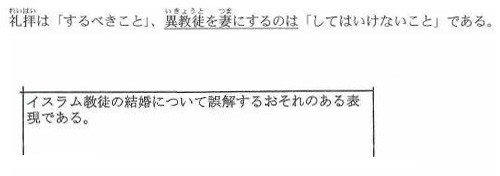 れいはい いきょうと つま
礼拝は「するべきこと」、異教徒を妻にするのは「してはいけないこと」である。
イスラム教徒の結婚について誤解するおそれのある表
現である。